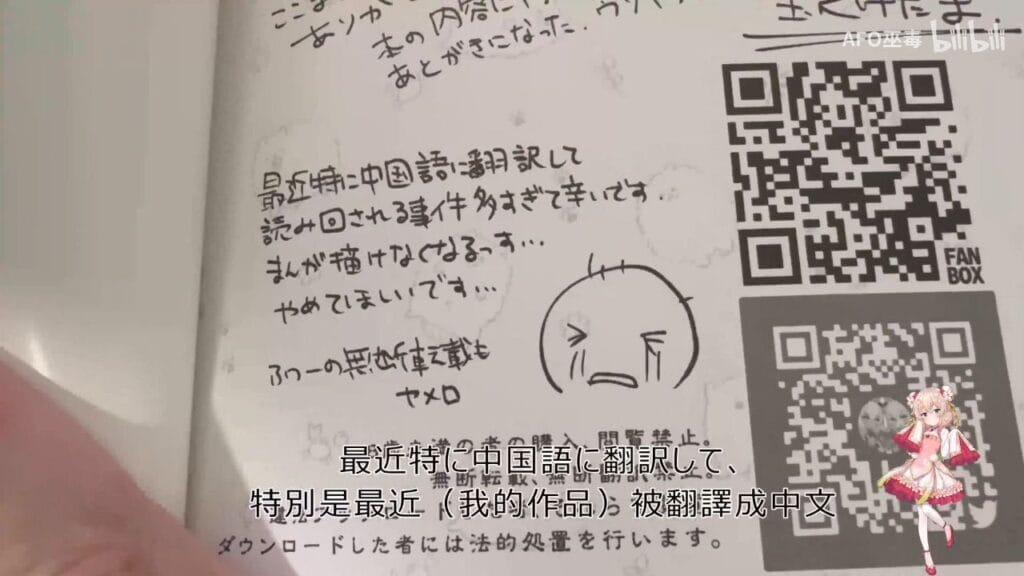 ありか
本の内容に
あとがきになった.
AI O巫毒 bilibili
最近特に中国語に翻訳して
読み回される事件多すぎて辛いです.
まんが描けなくなるっす…
やめてほしいです…
ふつーの無断転載も
ヤメロ
FAN
BOX
の者の購入、閲覧禁止。
無断転載、無断翻訳禁止。
最近特に中国語に翻訳して、
特別是最近（我的作品）被翻譯成中文
ダウンロードした者には法的処置を行います。